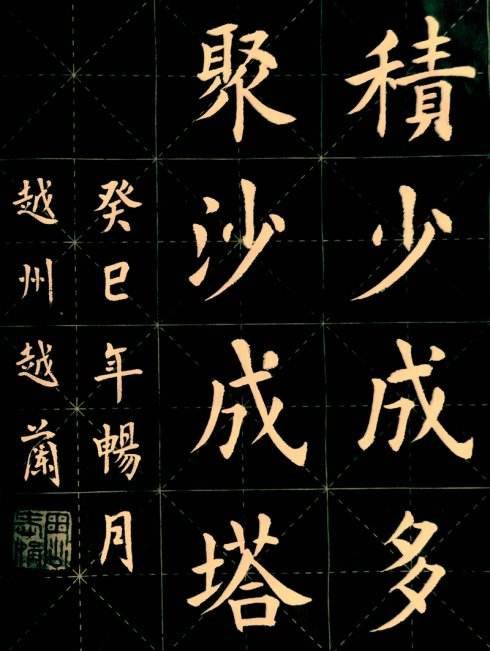 積少成多
聚沙成塔
癸巳年暢月
越州越蘭